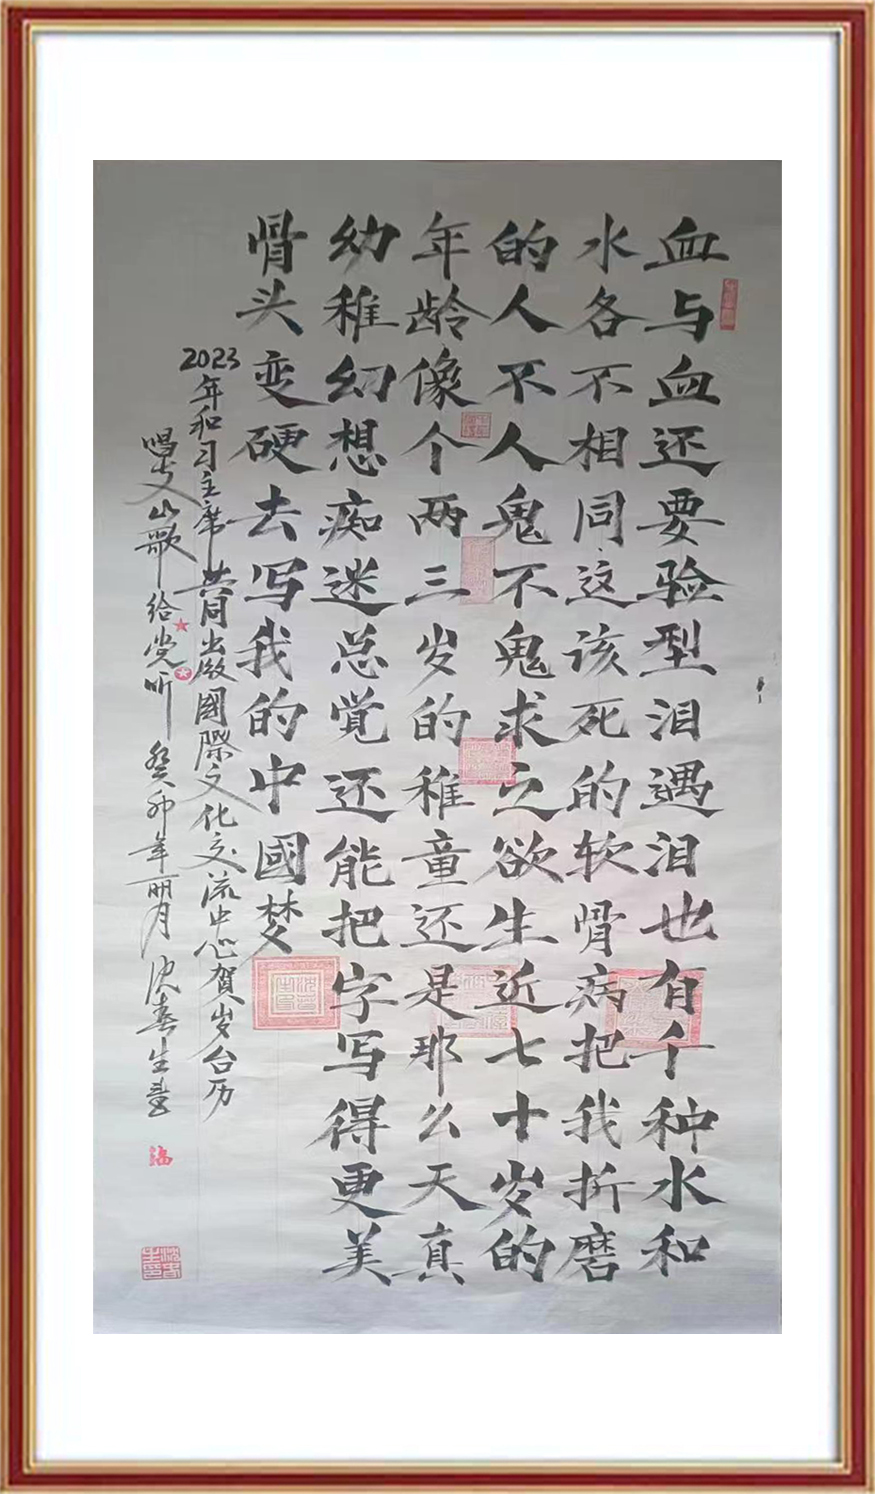 血与血还要验型泪遇泪也有千种水和
水各不相同这该死的软骨病把我折磨
的人不人鬼不鬼求之欲生近七十岁的
年龄像个两三岁的稚童还是那么天真
幼稚幻想痴迷总觉还能把字写得更美
骨头变硬去写我的中國梦
2023年和习主席 出版國際文化交流中心贺岁台历
唱支山歌给党听 癸卯年 月 沈春生書